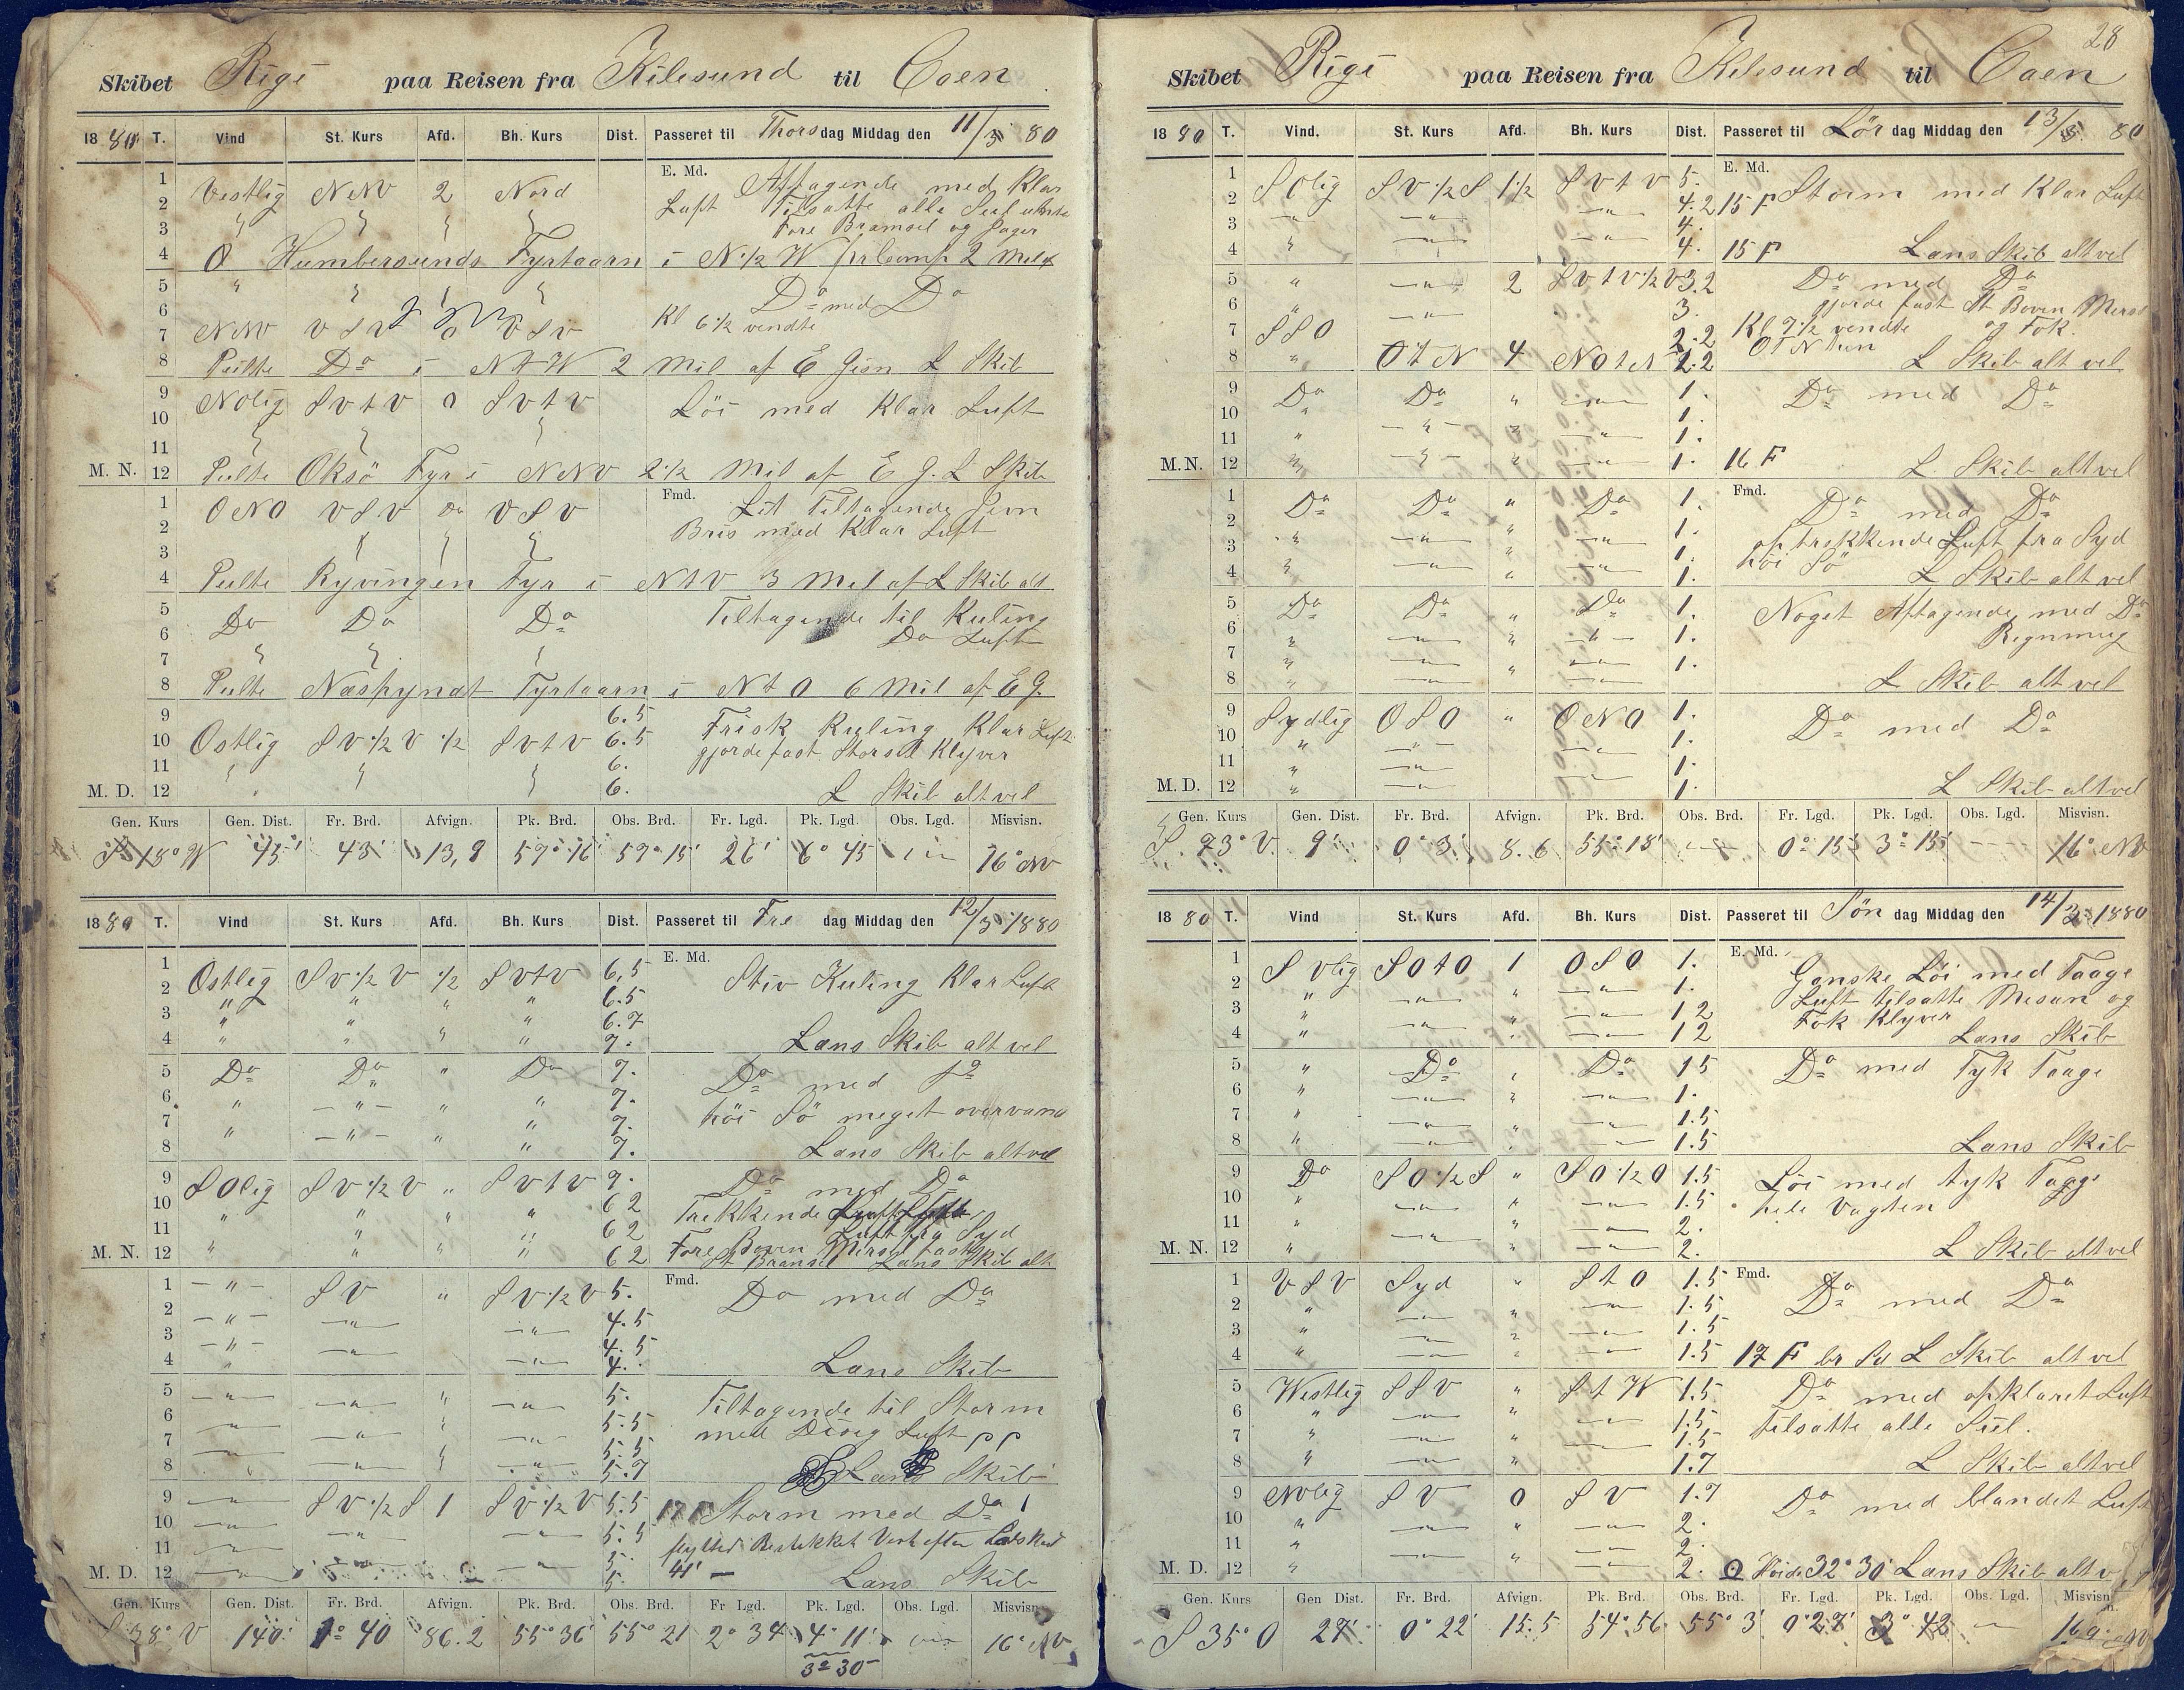 28
Skibet Rigi paa Reisen fra Kilesund til Caen
1880 T. Vind St. Kurs Afd. Bh. Kurs Dist. Passeret til Thorsdag Middag den 11/3 80
E. Md.
1 Vestlig NNV 2 Nord Aftagende med Klar
2 Luft Tilsatte alle Seil
3 Fore Bramseil og Jager
4 Fyrtaarn i N 1/2 W 2 Mil
5 " Do med Do
6 Kl 6 1/2 vendte
7 NNV VSV 0 VSV
8 Peilte Do i NtW 2 Mil af E Gisn L Skib
9 NOlig SVtV 0 SVtV Löi med Klar Luft
10
11
M. N. 12 Peilte Oksö Fyr i NNV 2 1/2 Mil af E G. L Skib
Fmd.
1 ONO VSV 0 VSV Lit Tiltagende Jevn
2 Bris med Klar Luft
3
4 Peilte Ryvingen Fyr i NtV 3 Mil af L Skib alt
5 Do Do Do Tiltagende til Kuling
6 Do Luft
7
8 Peilte Fyrtaarn i NtO 6 Mil af E G.
9 6.5 Frisk Kuling Klar Luft
10 Ostlig SV 1/2 V 1/2 SVtV 6.5 gjorde fast Storseil Klyver
11 6.
M. D. 12 6. L Skib alt vel
Gen. Kurs Gen. Dist. Fr. Brd. Afvign. Pk. Brd. Obs. Brd. Fr. Lgd. Pk. Lgd. Obs. Lgd. Misvisn.
S 18° W 45' 43' 13,8 57° 16' 57° 15' 26' 6° 45 16° NV
1880 T. Vind St. Kurs Afd. Bh. Kurs Dist. Passeret til Fredag Middag den 12/3 1880
E. Md.
1 Ostlig SV 1/2 V 1/2 SVtV 6,5 Stiv Kuling Klar Luft
2 " " " " 6.5
3 " " " " 6.7
4 " " " " 7. Lans Skib alt vel
5 Do Do " Do 7. Do med Do
6 " " " " 7. höi Sö meget overvand
7 " " " " 7.
8 7. Lans Skib alt vel
9 SOlig SV 1/2 V " SVtV 7. Do med Do
10 " " " " 6 2 Trekkende
11 " " " 6 2 Luft fra Syd
M. N. 12 " " " " 6 2 Fore Boven Mers fast
St Bramseil Lans Skib alt
Fmd.
1 " SV " SV 1/2 V 5. Do med Do
2 " " " 4.5
3 " " " 4.5
4 " 4. Lans Skib
5 " " " " 5. Tiltagende til Storm
6 " " " " 5.5 med Disig Luft pp
7 " " " " 5.5
8 5.7 Lans Skib
9 " SV 1/2 S 1 SV 1/2 V 5.5 17 F Storm med Do
10 " " " 5.5 Bestikket Vest efter
11 " 5. 41'
M. D. 12 " " 5. Lans Skib
Gen. Kurs Gen. Dist. Fr. Brd. Afvign. Pk. Brd. Obs. Brd. Fr Lgd. Pk. Lgd. Obs. Lgd. Misvisn.
S 38° V 140' 1° 40 86.2 55° 36' 55° 21 2° 34 4° 11' 16° NV
3° 30
Skibet Rigi paa Reisen fra Kilesund til Caen
1880 T. Vind. St. Kurs Afd. Bh. Kurs Dist. Passeret til Lördag Middag den 13/3. 80
E. Md.
1 SOlig SV 1/2 S 1 1/2 SVtV 5.
2 " 4.2 15 F Storm med Klar Luft
3 " " " 4.
4 " " " 4. 15 F Lans Skib alt vel
5 " " 2 SVtV 1/2 V 3.2 Do med Do
6 " " 3. gjorde fast St Boven Mers
7 SSO 2.2 Kl 7 1/2 vendte og Fok.
8 " OtN 4 NOtN 2.2 OtN hen L Skib alt vel
9 Do Do " " 1. Do med Do
10 " " 1.
11 " " " " 1.
M.N. 12 " " " " 1. 16 F L Skib alt vel
Fmd.
1 Do Do " Do 1. Do med Do
2 " " " " 1. optrekkende Luft fra Syd
3 " " " " 1. höi Sö
4 " 1. L Skib alt vel
5 Do Do " Do 1. Noget Aftagende med Do
6 " " " " 1. Regnmug
7 " " " " 1.
8 " " " L Skib alt vel
9 Sydlig OSO " ONO 1. Do med Do
10 " " " 1.
11 " " " 1.
M. D. 12 " " " 1. L Skib alt vel
Gen. Kurs Gen. Dist. Fr. Brd. Afvign. Pk. Brd. Obs. Brd. Fr. Lgd. Pk. Lgd. Obs. Lgd. Misvisn.
S. 73° V. 9' 0° 3' 8.6 55° 18' 0° 15' 3° 15' 16° NV
1880 T. Vind St. Kurs Afd. Bh. Kurs Dist. Passeret til Söndag Middag den 14/3 1880
E. Md.
1 SVlig SOtO 1 OSO 1. Ganske Löi med Taage
2 " " " " 1. Luft tilsatte Mesan og
3 " " " " 1 2 Fok Klyver
4 " " " " 1 2 Lans Skib
5 " Do " Do 1 5 Do med Tyk Taage
6 " " " " 1.
7 " " " 1.5
8 " " " 1.5 Lans Skib
9 Do SO 1/2 S " SO 1/2 O 1.5 Löi med tyk Taage
10 " " " " 1.5 hele Vagten
11 " " " " 2.
M. N. 12 " " " 2. L Skib alt vel
Fmd.
1 VSV Syd " StO 1.5 Do med Do
2 " " " " 1.5
3 " " " " 1.5
4 " " " " 1.5 17 F br Sd L Skib alt vel
5 Westlig SSV " StW 1.5 Do med opklaret Luft
6 " " " " 1.5 tilsatte alle Seil.
7 " " " " 1.5
8 " " " 1.7 L Skib alt vel
9 NVlig SV 0 SV 1.7 Do med blandet Luft
10 " " " " 2.
11 " " " " 2.
M. D. 12 " 2. Höide 32° 30' Lans Skib alt v
Gen. Kurs Gen Dist. Fr. Brd. Afvign. Pk. Brd. Obs. Brd. Fr. Lgd. Pk. Lgd. Obs. Lgd. Misvisn.
S 35° O 27' 0° 22' 15.5 54° 56 55° 3' 0° 27' 3° 42 16° NV